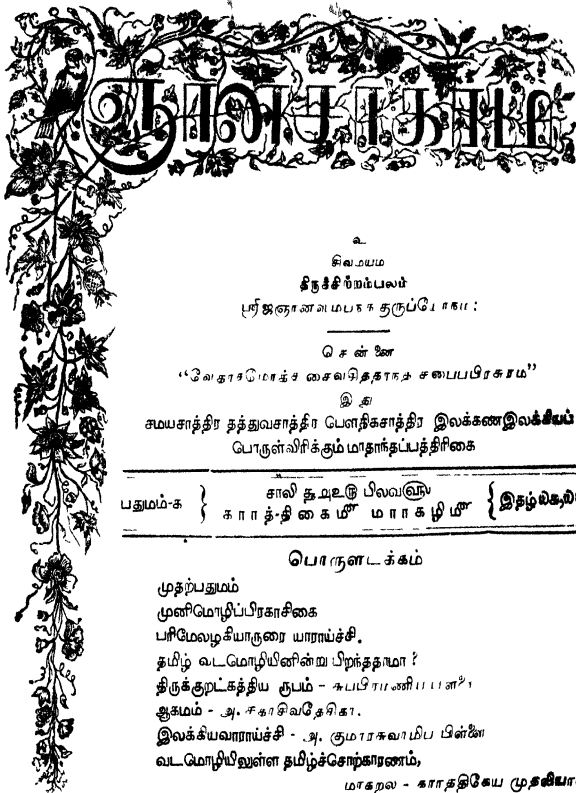 ஞானசாகரம்
உ
சிவமயம்
திருச்சிற்றம்பலம்
சென்னை
“வேதாகமோக்த சைவசித்தாந்த சபைப்பிரசுரம்”
இது
சமயசாத்திர தத்துவசாத்திர பௌதிகசாத்திர இலக்கணஇலக்கியப்
பொருள்விரிக்கும் மாதாந்தப்பத்திரிகை
பதுமம்-க } சாலி பிலவளு { இதழ்
கார்த்திகைமீ மார்கழிமீ
பொருளடக்கம்
முதற்பதுமம்
முனிமொழிப்பிரகாசிகை
பரிமேலழகியாருரை யாராய்ச்சி.
தமிழ் வடமொழியினின்று பிறந்ததாமா?
திருக்குறட்கத்திய ரூபம் -
ஆகமம் - அ. சதாசிவதேசிகர்.
இலக்கியவாராய்ச்சி - அ. குமாரசுவாமிப் பிள்ளை
வடமொழியிலுள்ள தமிழ்ச்சொற்காரணம்,
மாகறல் - கார்த்திகேய